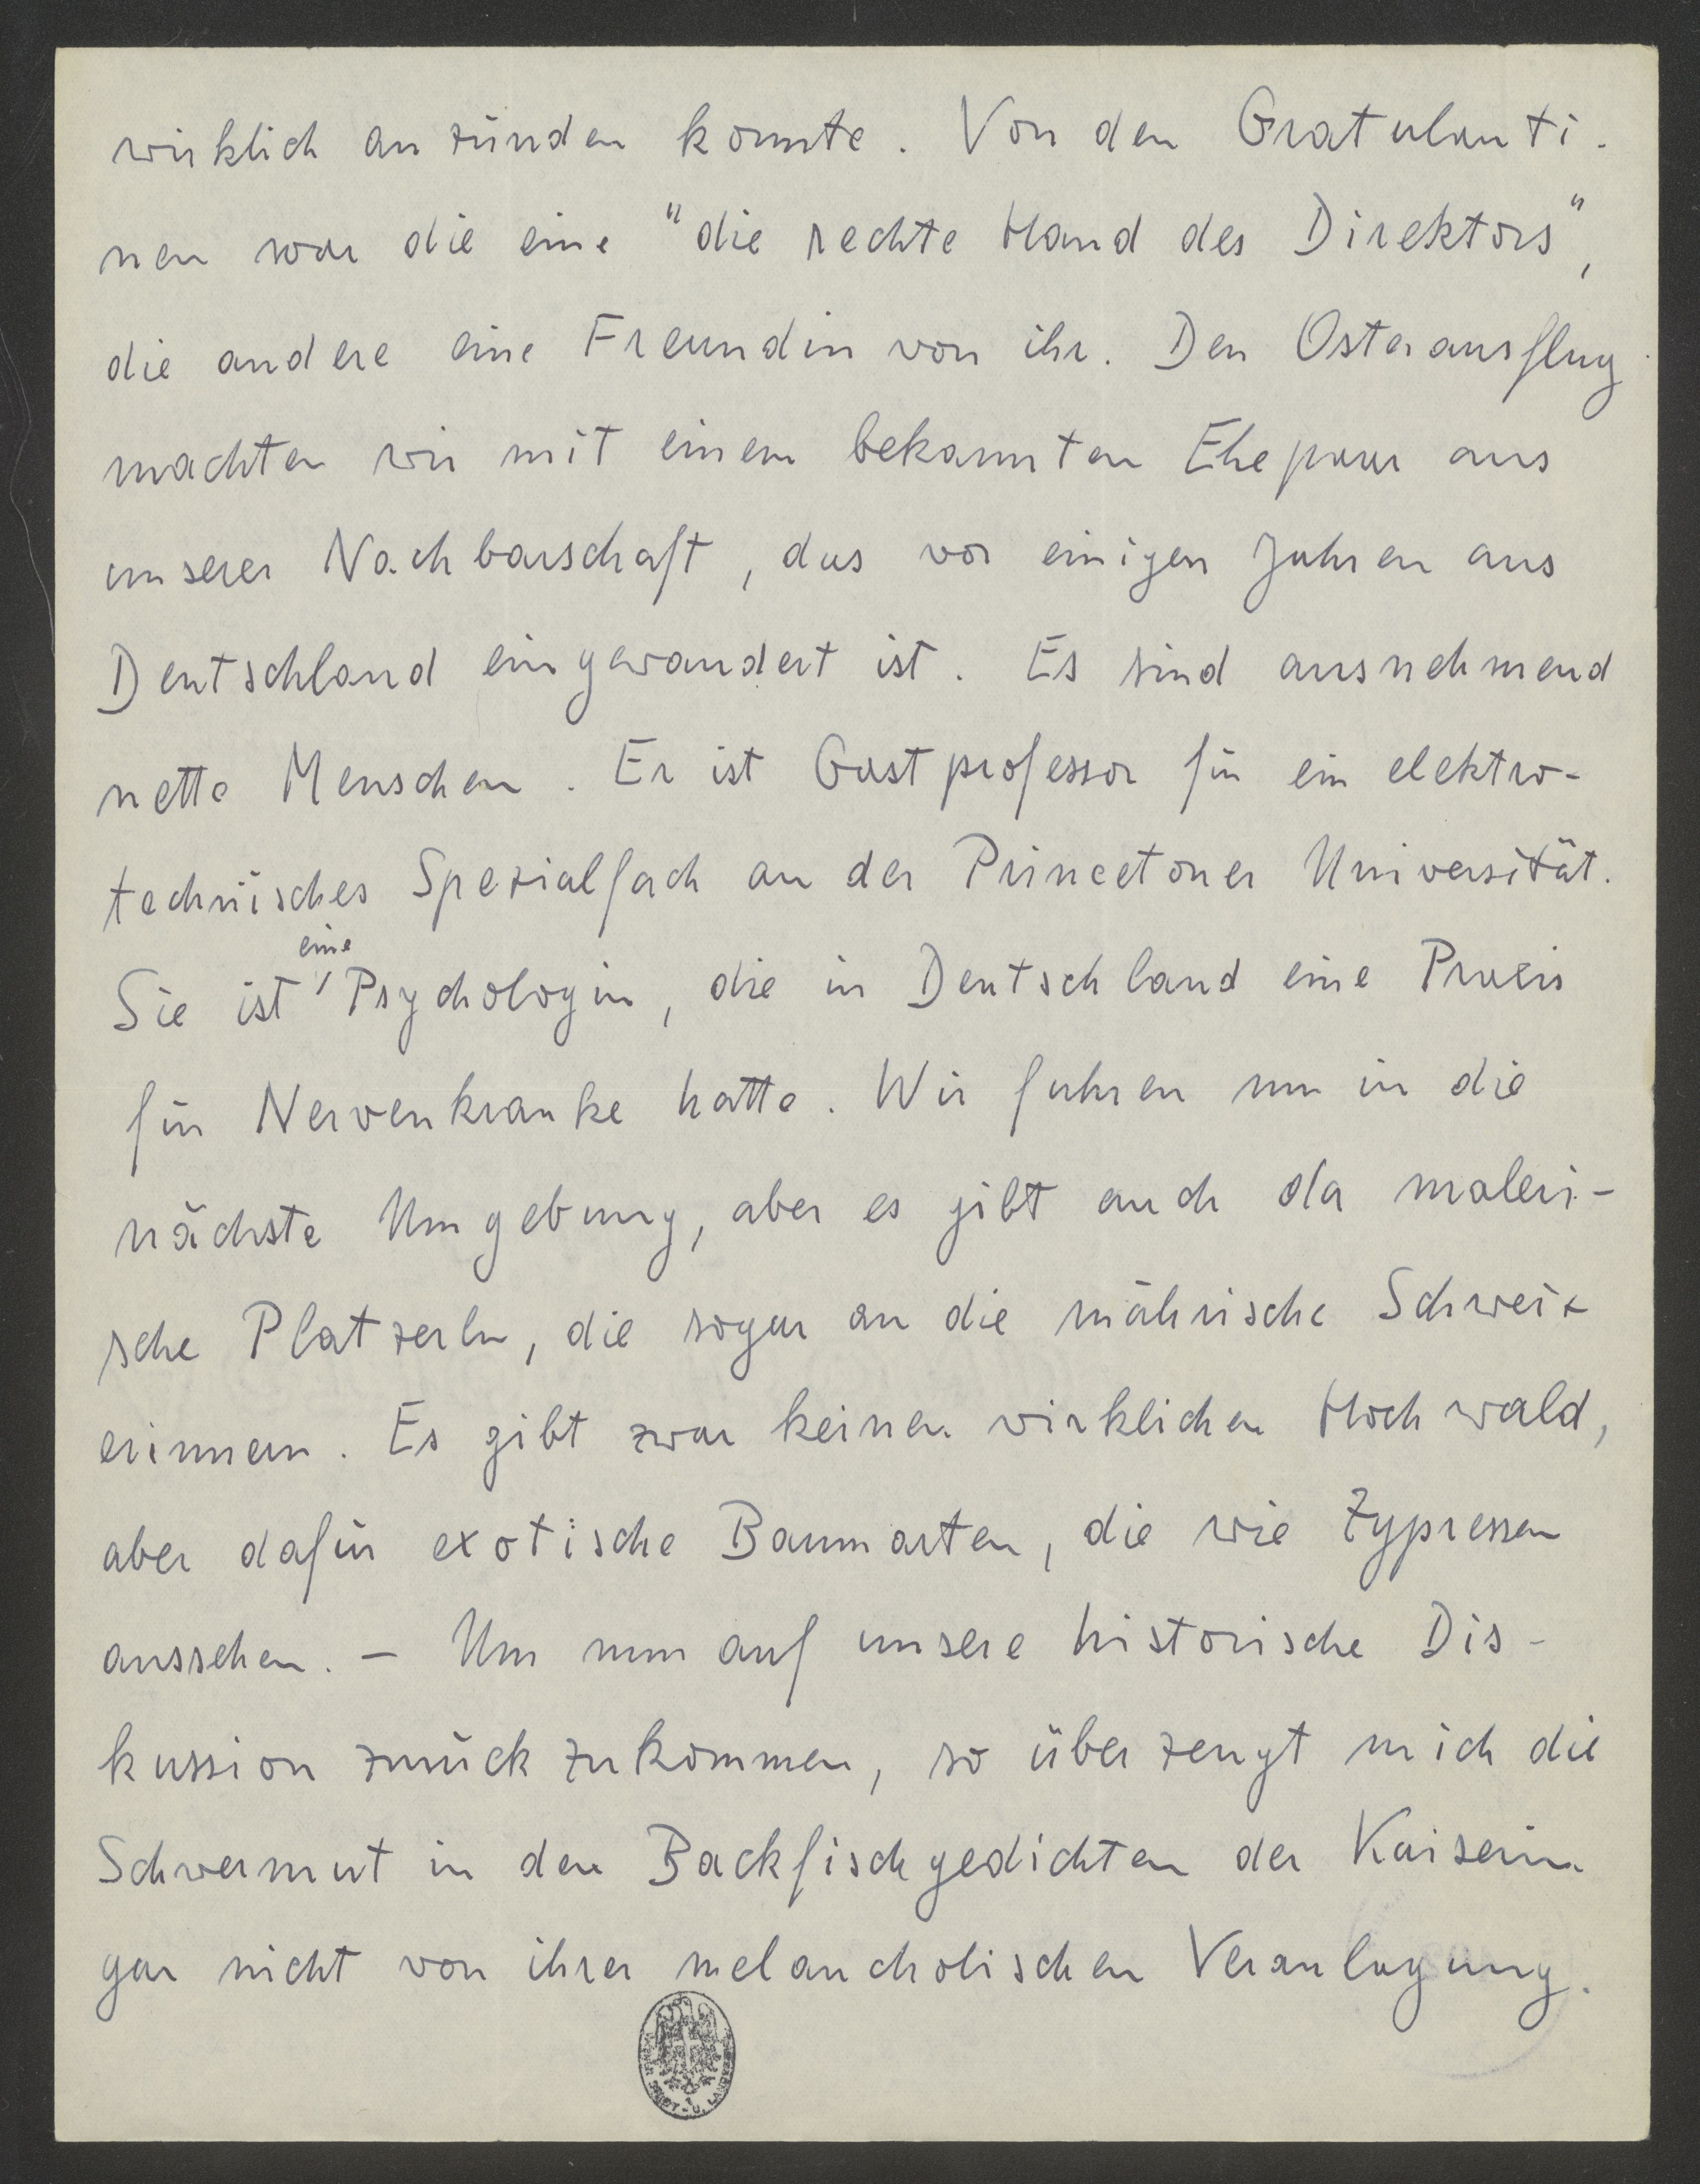 wirklich anzünden konnte. Von den Gratulanti-
nen war die eine "die rechte Hand des Direktors",
die andere eine Freundin von ihr. Den Osterausflug
machten wir mit einem bekannten Ehepaar aus
unserer Nachbarschaft, das vor einigen Jahren aus
Deutschland eingewandert ist. Es sind ausnehmend
nette Menschen. Er ist Gastprofessor für ein elektro-
technisches Spezialfach an der Princetoner Universität.
eine
Sie ist Psychologin, die in Deutschland eine Praxis
für Nervenkranke hatte. Wir fuhren nur in die
nächste Umgebung, aber es gibt auch da maleri-
sche Platzerln, die sogar an die mährische Schweiz
erinnern. Es gibt zwar keinen wirklichen Hochwald,
aber dafür exotische Baumarten, die wie Zypressen
aussehen. – Um nun auf unsere historische Dis-
kussion zurückzukommen, so überzeugt mich die
Schwermut in den Backfischgedichten der Kaiserin
gar nicht von ihrer melancholischen Veranlagung.